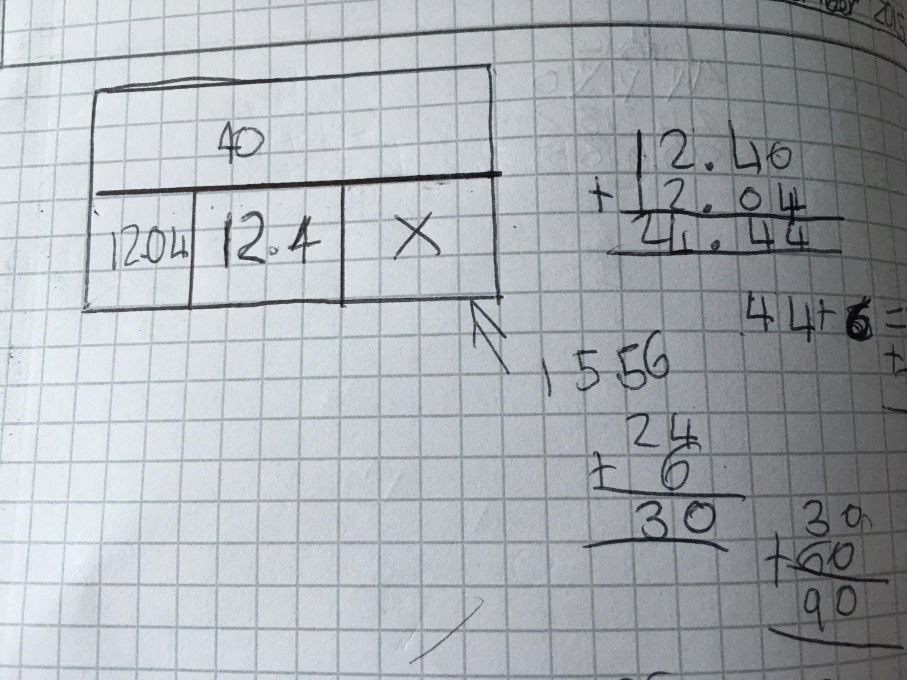 40
12.04 12.4 X
12.40
+ 12.04
24.44
44+6=
1 5.56
24
+ 6
30
30
+60
90